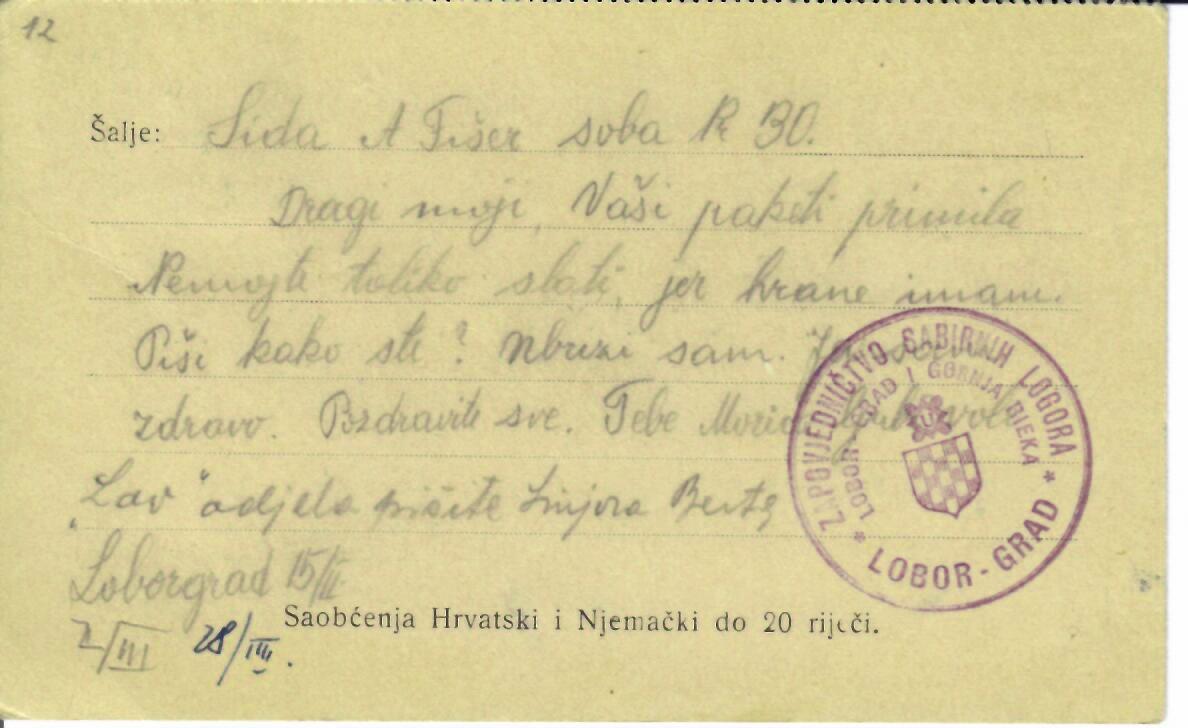 12
Šalje: Sida A Fišer soba R 30.
Dragi moji, Vaši paketi primila
Nemojte toliko slati, jer hrane imam.
Piši kako ste? sam.
zdravo. Pozdravite sve. Tebe
"Lav" odjela pišite Berta
Loborgrad 15/II
2/III 28/III.
Saobćenja Hrvatski i Njemački do 20 riječi.
ZAPOVJEDNIČTVO SABIRNIH LOGORA
LOBOR GRAD I GORNJA RIEKA
* LOBOR-GRAD *